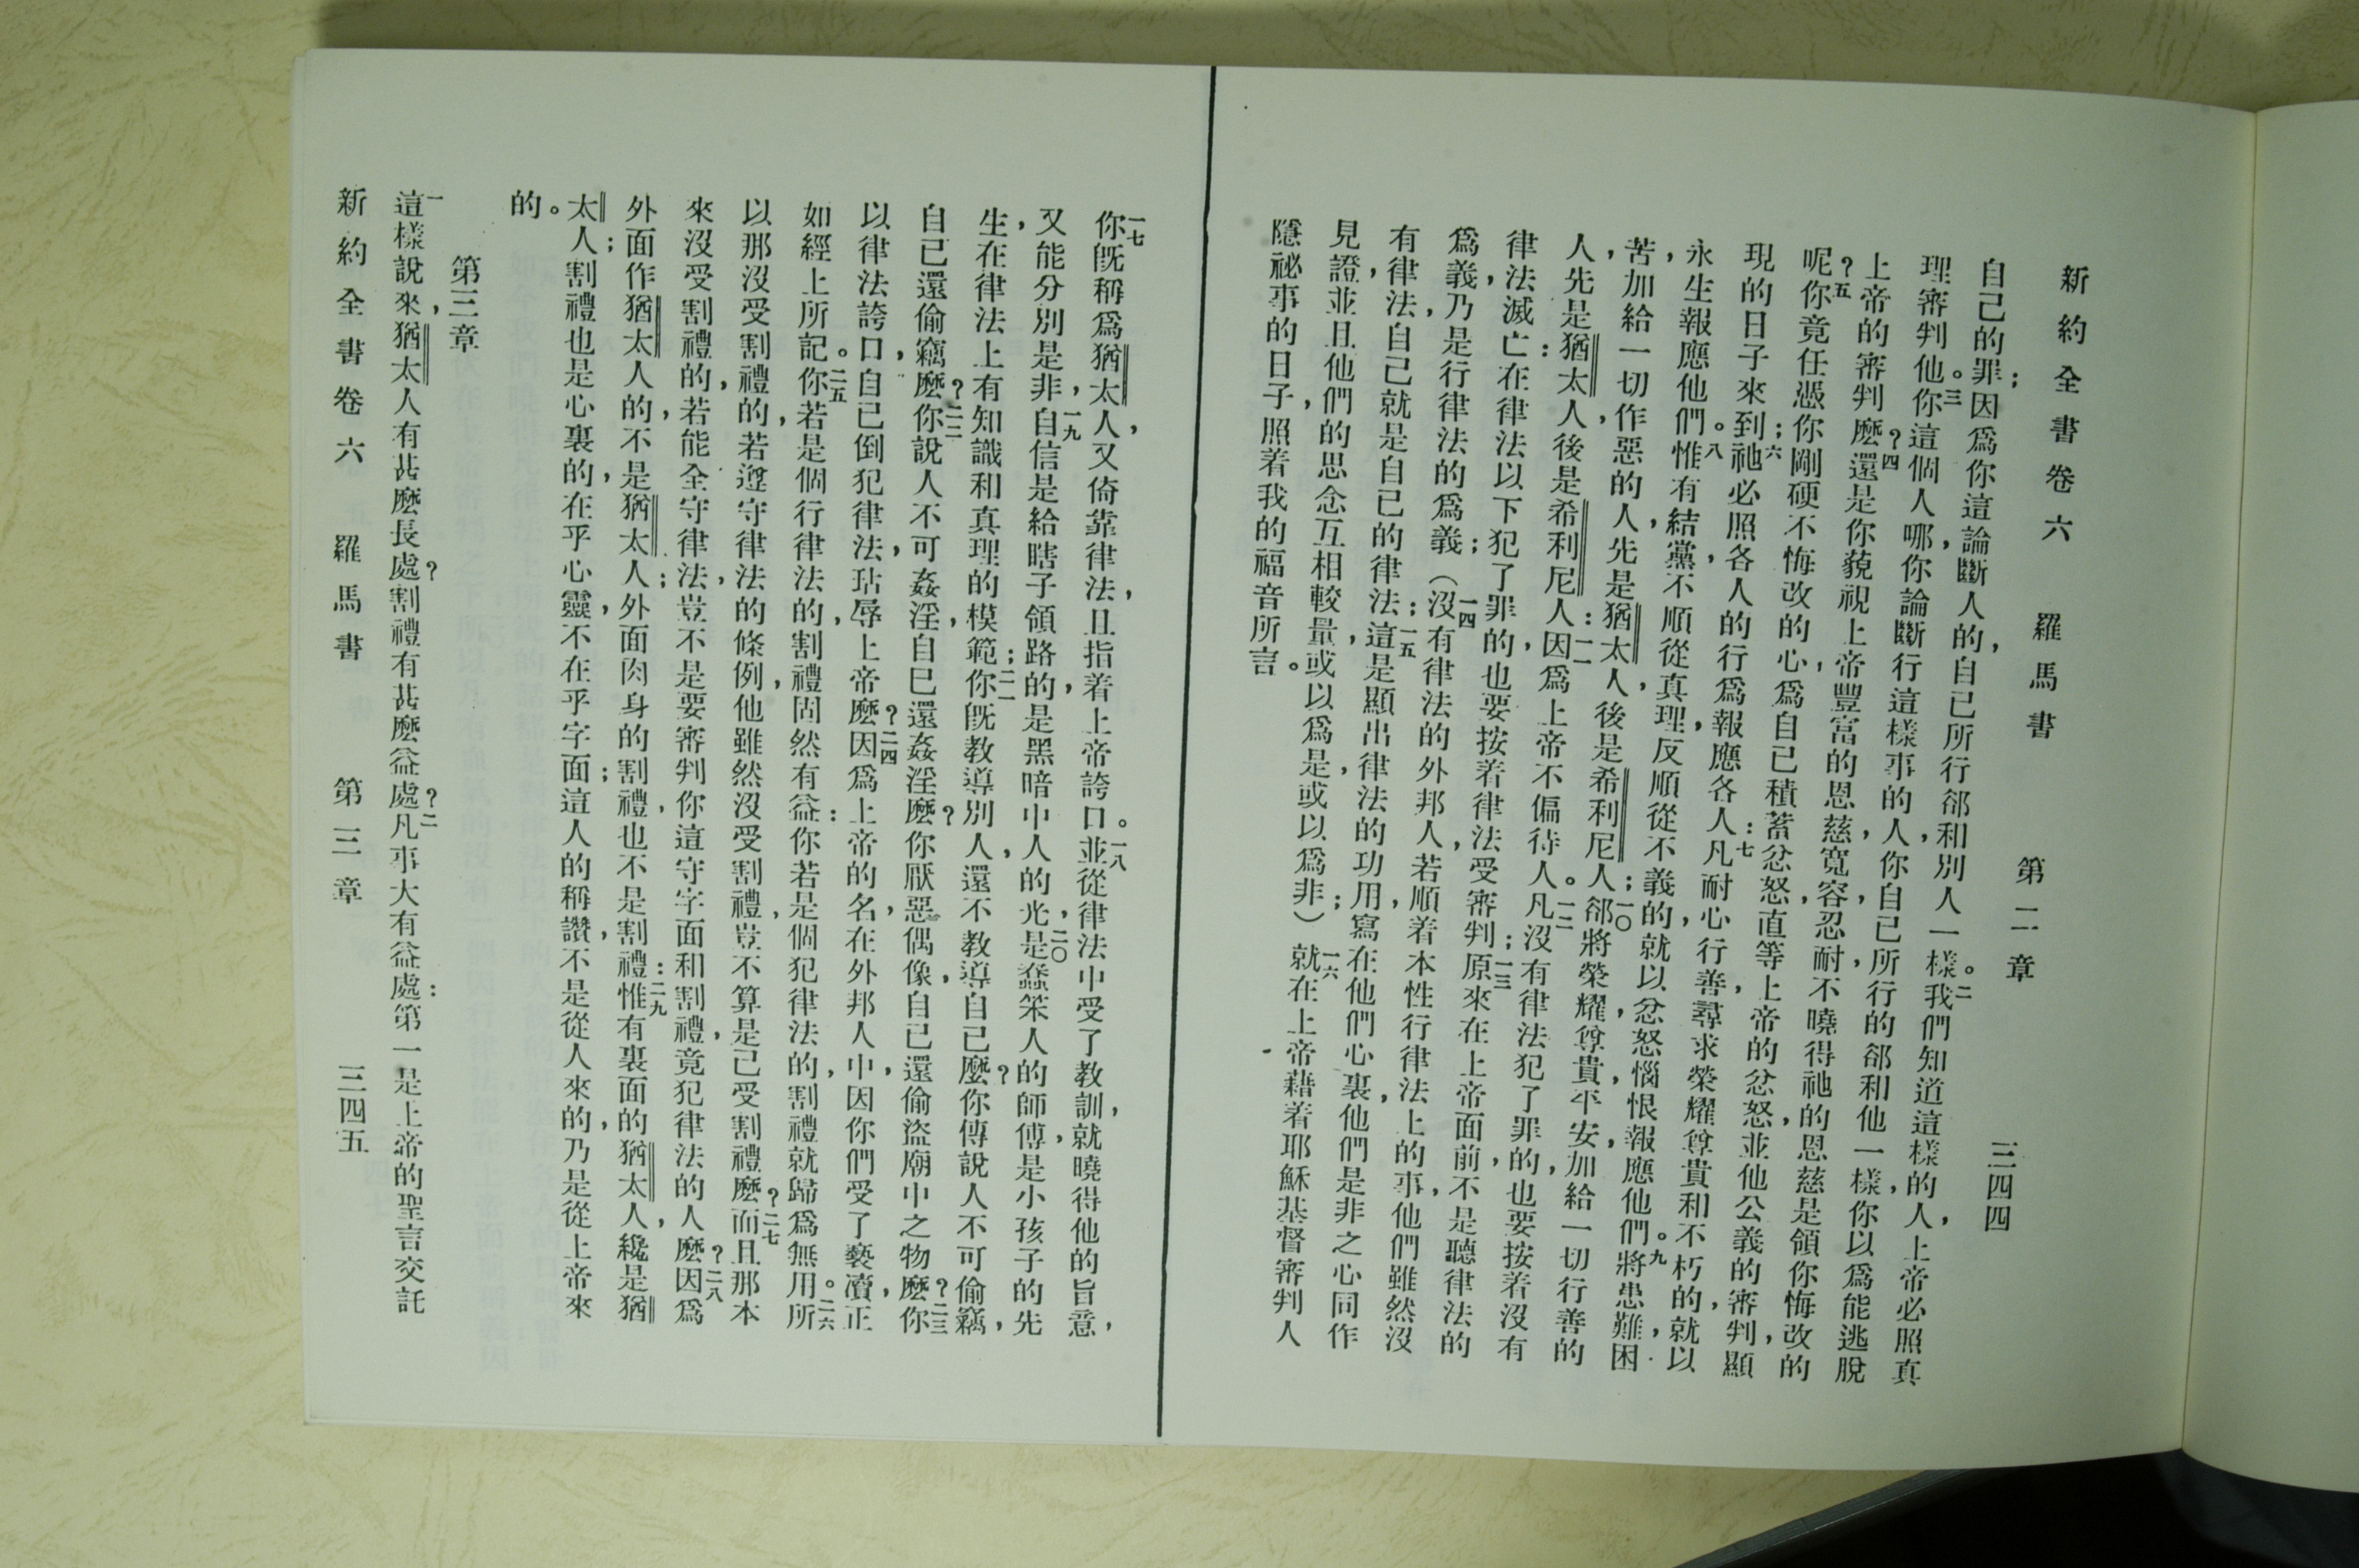 新約全書卷六　羅馬書　第二章　三四四
自己的罪；因爲你這論斷人的，自己所行郤和別人一樣。二我們知道這樣的人，上帝必照真
理審判他。三你這個人哪，你論斷行這樣事的人，你自己所行的郤和他一樣，你以爲能逃脫
上帝的審判麽？四還是你藐視上帝豐富的恩慈，寬容，忍耐，不曉得祂的恩慈是領你悔改的
呢？五你竟任憑你剛硬不悔改的心，爲自己積蓄忿怒，直等上帝的忿怒，並他公義的審判，顯
現的日子來到；六祂必照各人的行爲報應各人：七凡耐心行善，尋求榮耀尊貴和不朽的，就以
永生報應他們。八惟有結黨，不順從真理，反順從不義的，就以忿怒惱恨報應他們。九將患難，困
苦，加給一切作惡的人，先是猶太人，後是希利尼人；一〇郤將榮耀，尊貴，平安，加給一切行善的
人，先是猶太人，後是希利尼人：一一因爲上帝不偏待人。一二凡沒有律法犯了罪的，也要按着沒有
律法滅亡：在律法以下犯了罪的，也要按着律法受審判；一三原來在上帝面前，不是聽律法的
爲義，乃是行律法的爲義；（一四沒有律法的外邦人，若順着本性行律法上的事，他們雖然沒
有律法，自己就是自己的律法；一五這是顯出律法的功用，寫在他們心裏，他們是非之心同作
見證，並且他們的思念互相較量，或以爲是，或以爲非；）一六就在上帝藉着耶穌基督審判人
隱祕事的日子，照着我的福音所言。
一七你旣稱爲猶太人，又倚靠律法，且指着上帝誇口。一八並從律法中受了教訓，就曉得他的旨意，
又能分別是非，一九自信是給瞎子領路的，是黑暗中人的光，二〇是蠢笨人的師傅，是小孩子的先
生，在律法上有知識和真理的模範；二一你旣教導別人，還不教導自己麽？你傳說人不可偷竊，
自己還偷竊麽？二二你說人不可姦淫，自己還姦淫麽？你厭惡偶像，自己還偷盜廟中之物麽？二三你
以律法誇口，自己倒犯律法，玷辱上帝麽？二四因爲上帝的名，在外邦人中，因你們受了褻瀆，正
如經上所記。二五你若是個行律法的，割禮固然有益：你若是個犯律法的，割禮就歸爲無用。二六所
以那沒受割禮的，若遵守律法的條例，他雖然沒受割禮，豈不算是已受割禮麽？二七而且那本
來沒受割禮的，若能全守律法，豈不是要審判你這守字面和割禮，竟犯律法的人麽？二八因爲
外面作猶太人的，不是猶太人；外面肉身的割禮，也不是割禮：二九惟有裏面的猶太人，纔是猶
太人；割禮也是心裏的，在乎心靈，不在乎字面；這人的稱讚，不是從人來的，乃是從上帝來
的。
第三章
一這樣說來，猶太人有甚麽長處？割禮有甚麽益處？二凡事大有益處：第一是上帝的聖言交託
新約全書卷六　羅馬書　第三章　三四五